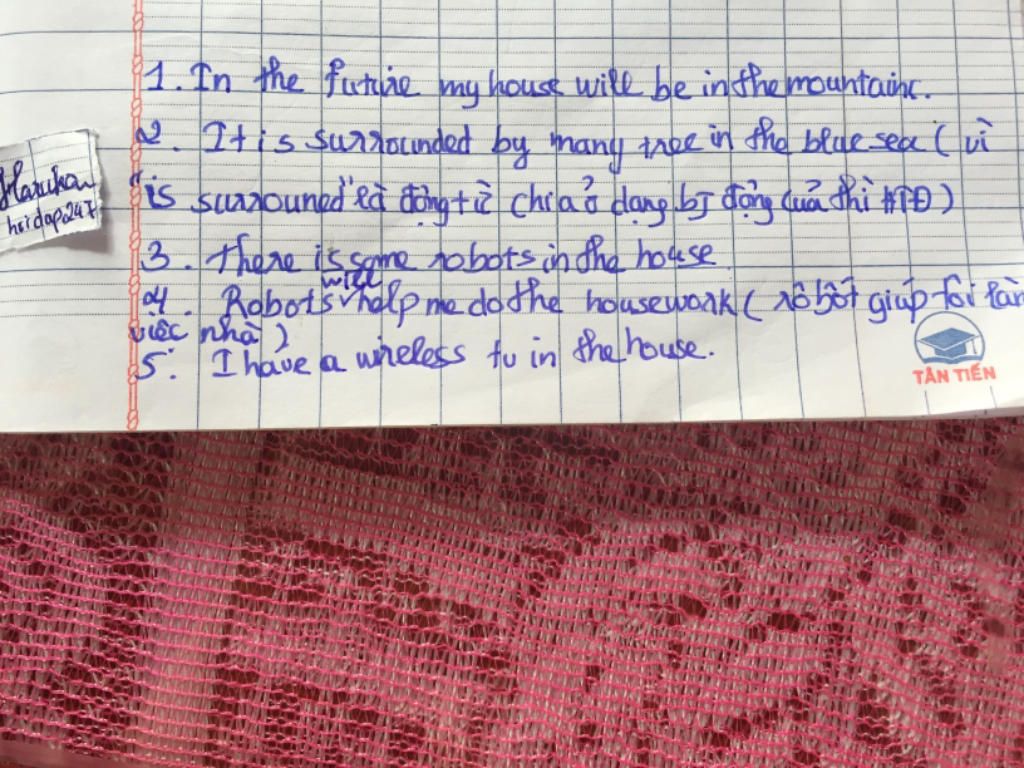 1. In the future my house will be in the mountains.
2. It is surrounded by many tree in the blue sea ( vì
"is surrouned" là động từ chia ở dạng bị động của thì HTĐ )
Haruka
hoidap247
3. There is some robots in the house
will
4. Robots help me do the housework ( rô bốt giúp tôi làm
việc nhà )
5. I have a wireless tv in the house.
TÂN TIẾN